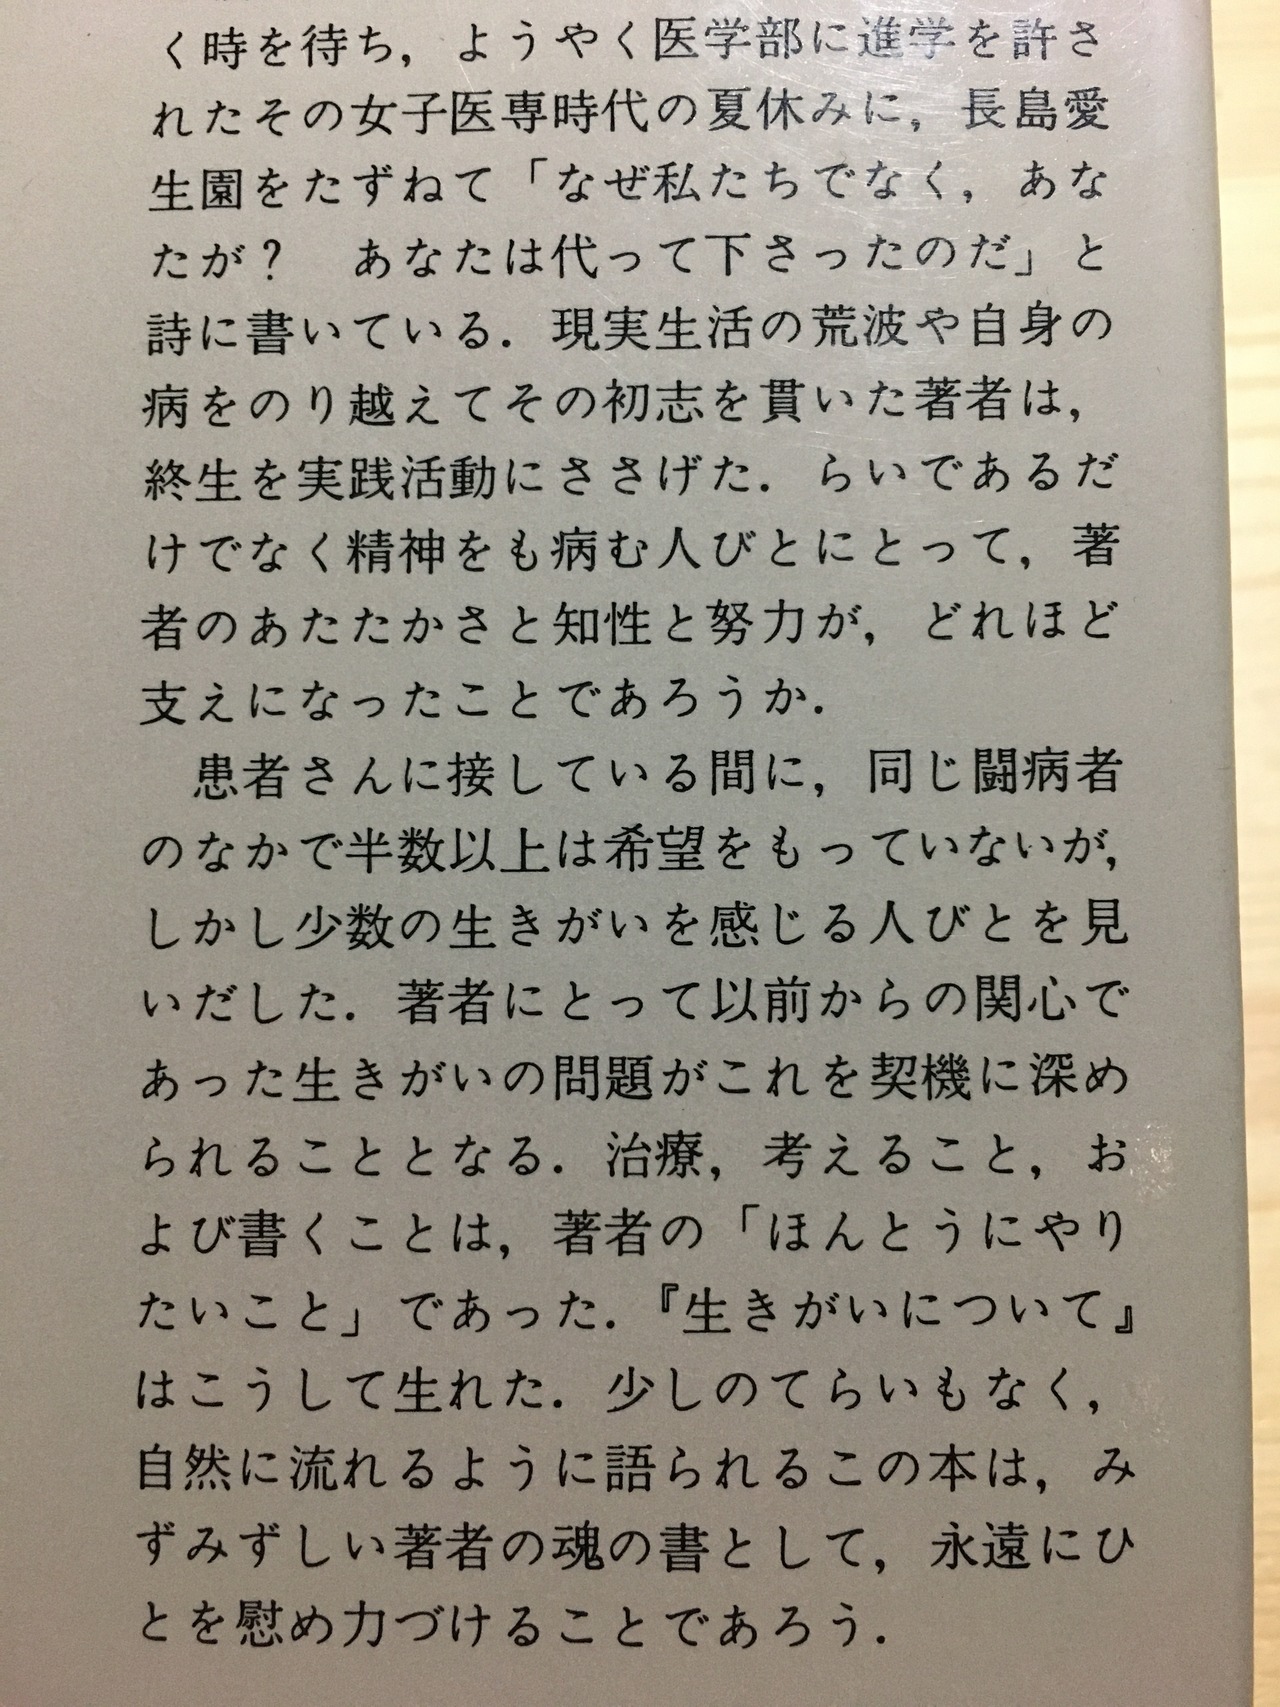 く時を待ち，ようやく医学部に進学を許さ
れたその女子医専時代の夏休みに，長島愛
生園をたずねて「なぜ私たちでなく，あな
たが？　あなたは代って下さったのだ」と
詩に書いている．現実生活の荒波や自身の
病をのり越えてその初志を貫いた著者は，
終生を実践活動にささげた．らいであるだ
けでなく精神をも病む人びとにとって，著
者のあたたかさと知性と努力が，どれほど
支えになったことであろうか．
　患者さんに接している間に，同じ闘病者
のなかで半数以上は希望をもっていないが，
しかし少数の生きがいを感じる人びとを見
いだした．著者にとって以前からの関心で
あった生きがいの問題がこれを契機に深め
られることとなる．治療，考えること，お
よび書くことは，著者の「ほんとうにやり
たいこと」であった．『生きがいについて』
はこうして生れた．少しのてらいもなく，
自然に流れるように語られるこの本は，み
ずみずしい著者の魂の書として，永遠にひ
とを慰め力づけることであろう．